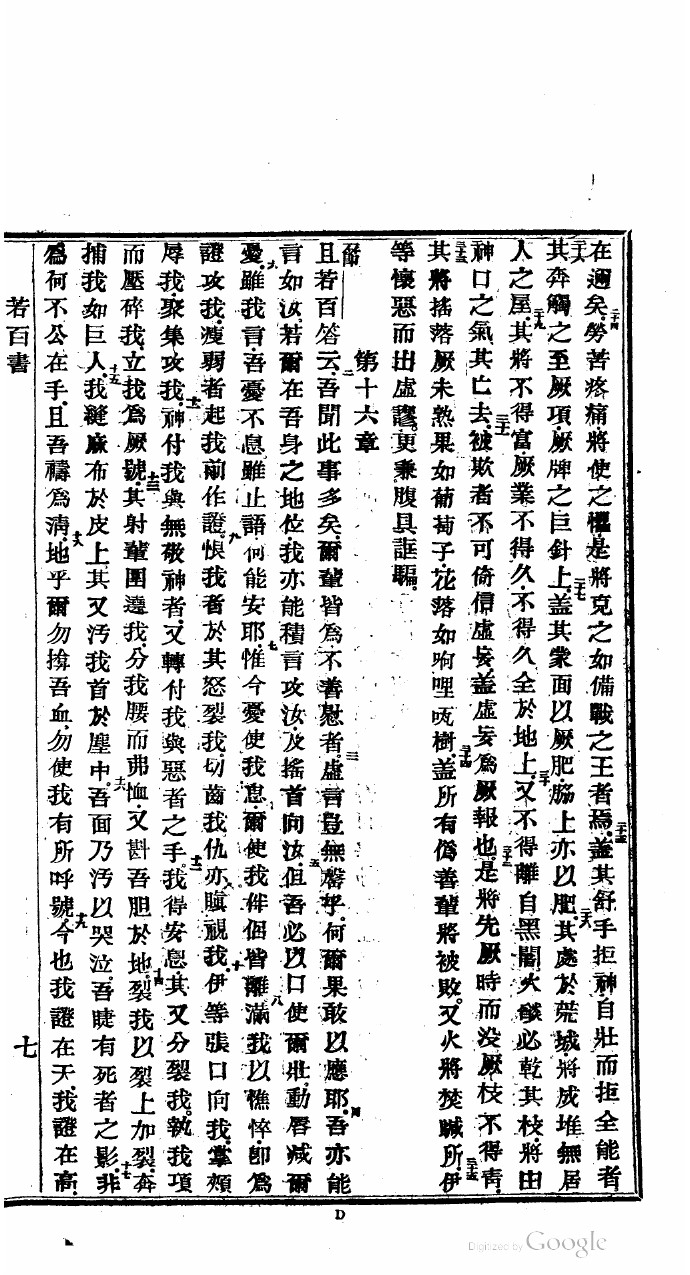 在邇矣勞苦疼痛將使之懼是將克之如備戰之王者焉蓋其舒手拒神自壯而拒全能者
其奔觸之至厥項厥牌之巨針上蓋其蒙面以厥肥脇上亦以肥其處於荒城將成堆無居
人之屋其將不得富厥業不得久不得久全於地上又不得離自黑闇火燄必乾其枝將由
神口之氣其亡去被欺者不可倚信虛妄蓋虛妄為厥報也是將先厥時而没厥枝不得青
其將搖落厥未熟果如葡萄子花落如啊哩𠯈樹蓋所有偽善輩將被敗又火將焚贓所伊
等懷惡而出虛謬更秉腹具誑騙
第十六章
且若百答云吾聞此事多矣爾輩皆為不善慰者虛言豈無罄乎何爾果敢以應耶吾亦能
言如汝若爾在吾身之地位我亦能積言攻汝及搖首向汝但吾必以口使爾壯動唇減爾
憂雖我言吾憂不息雖止語何能安耶惟今憂使我息爾使我伴個皆離滿我以憔悴卽為
證攻我瘦弱者起我前作證恨我者於其怒裂我切齒我仇亦瞋視我伊等張口向我掌頰
辱我聚集攻我神付我與無敬神者又轉付我與惡者之手我得安息其又分裂我執我項
而壓碎我立我為厥號其射輩圍遶我分我腰而弗恤又斟吾胆於地裂我以裂上加裂奔
捕我如巨人我縫麻布於皮上其又汚我首於塵中吾面乃汚以哭泣吾睫有死者之影非
為何不公在手且吾禱為清地乎爾勿揜吾血勿使我有所呼號今也我證在天我證在高
若百書
七
D
Digitized by Google